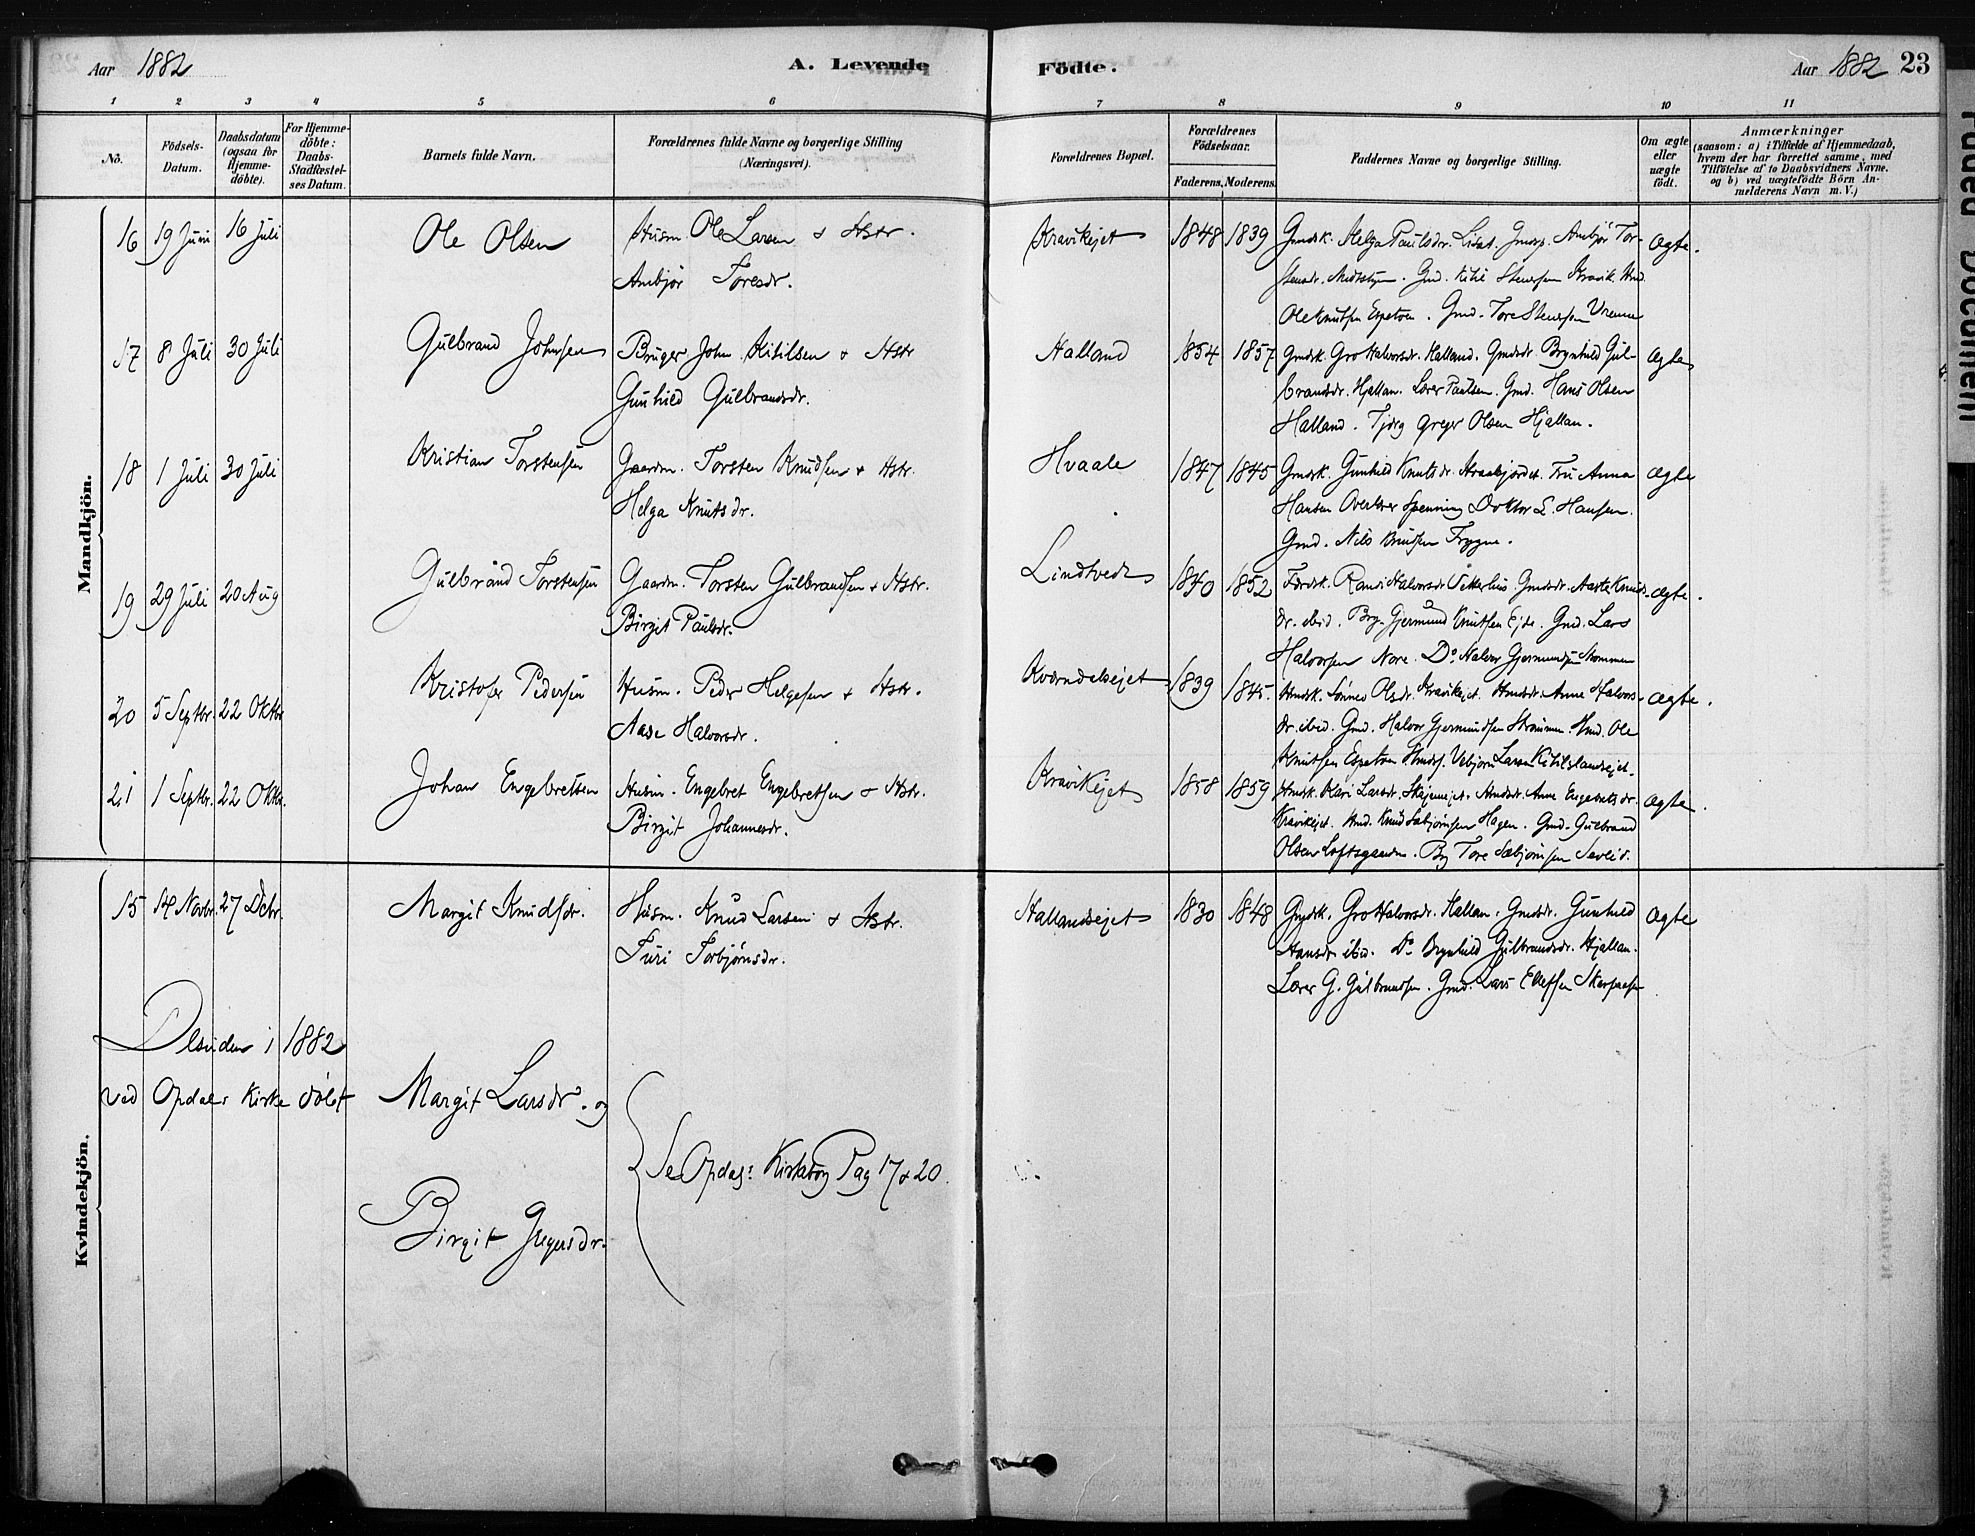 Aar 1882
A. Levende Födte.
Aar 1882 23
1 2 3 4 5 6 7 8 9 10 11
No.
Födsels-Datum.
Daabsdatum (ogsaa for Hjemme-döbte).
For Hjemme-döbte: Daabs-Stadfæstel-ses Datum.
Barnets fulde Navn.
Forældrenes fulde Navne og borgerlige Stilling (Næringsvei).
Forældrenes Bopæl.
Forældrenes Födselsaar.
Faderens. Moderens.
Faddernes Navne og borgerlige Stilling.
Om ægte eller uægte födt.
Anmærkninger
(saasom: a) i Tilfælde af Hjemmedaab,
hvem der har forrettet samme, med
Tilföielse af to Daabsvidners Navne.
og b) ved uægtefödte Börn An-
melderens Navn m. V.)
Mandkjön.
16 19 Juni 16 Juli Ole Olsen Husm. Ole Larsen & Hstr.
Ambjør Toresdr.
Kravikejet 1848 1839 Gmdsk. Helga Paulsdr. Ambjør Tor-
stensdr. Gmd. Kittil Stensen Kravik
Ole Knutsen Espetven. Gmd. Tore Stensen Vrenne
Ægte.
17 8 Juli 30 Juli Gulbrand Johnsen Bruger John Kitilsen & Hstr
Gunhild Gulbrandsdr.
Halland 1854 1857 Gmdsk. Gro Halvorsdr. Halland. Gmdsdr. Brynhild Gul-
brandsdr. Hjallan. Lærer Paulsen. Gmd. Hans Olsen
Halland. Greger Olsen Hjallan.
Ægte
18 1 Juli 30 Juli Kristian Torstensen Gaardm. Torsten Knudsen & Hstr.
Helga Knutsdr.
Hvaale 1847 1845 Gmdsk. Gunhild Knutsdr. Fru Anna
Hansen Spenning Doktor E. Hansen.
Gmd. Nils Knutsen Frygne.
Ægte
19 29 Juli 20 Aug Gulbrand Torstensen Gaardm. Torsten Gulbrandsen & Hstr.
Birgit Paulsdr.
Lindtvedt 1840 1852 Randi Halvorsdr. Gmdsdr. Aaste Knuds-
dr. ibid. Gjermund Knutsen Eide. Gmd. Lars
Halvorsen Nore. Do Halvor Gjermundsen Strømmen
Ægte.
20 5 Septbr. 22 Oktbr Kristofer Pedersen Husm. Peder Helgesen & Hstr.
Aase Halvorsdr.
Kværndalsejet 1839 1845. Hmdsk. Sønnev Olsdr. Kravikejet. Hmdsdr. Anne Halvors-
dr. ibid. Gmd. Halvor Gjermundsen Strømmen. Hmd. Ole
Knutsen Espetven Vebjørn Larsen Kitilslandsejet.
Ægte.
21 1 Septbr. 22 Oktbr. Johan Engebretsen Husm. Engebret Engebretsen & Hstr.
Birgit Johannesdr.
Kravikejet 1858 1859 Hmdsk. Kari Larsdr. Skjønnejet. Hmdsdr. Anne Engebretsdr.
Kravikejet. Hmd. Knud Sæbjørnsen Hagen. Gmd. Gulbrand
Olsen Loftsgaarden. Tore Sæbjørnsen Sevleid.
Ægte.
Kvindekjön.
15 14 Novbr. 27 Dcbr. Margit Knudsdr. Husm. Knud Larsen & Hstr.
Turi Torbjørnsdr.
Hallandsejet 1830 1848 Gmdsk. Gro Halvorsdr. Hallan. Gmdsdr. Gunhild
Hansdr. ibid. Do Brynhild Gulbrandsdr. Hjallan.
Lærer G. Gulbrandsen. Gmd. Lars Ellefsen
Ægte
Desuden i 1882
ved Opdals Kirke døbt Margit Larsdr. og
Birgit Gregersdr.
Se Opdals Kirkebog Pag 17 & 20.